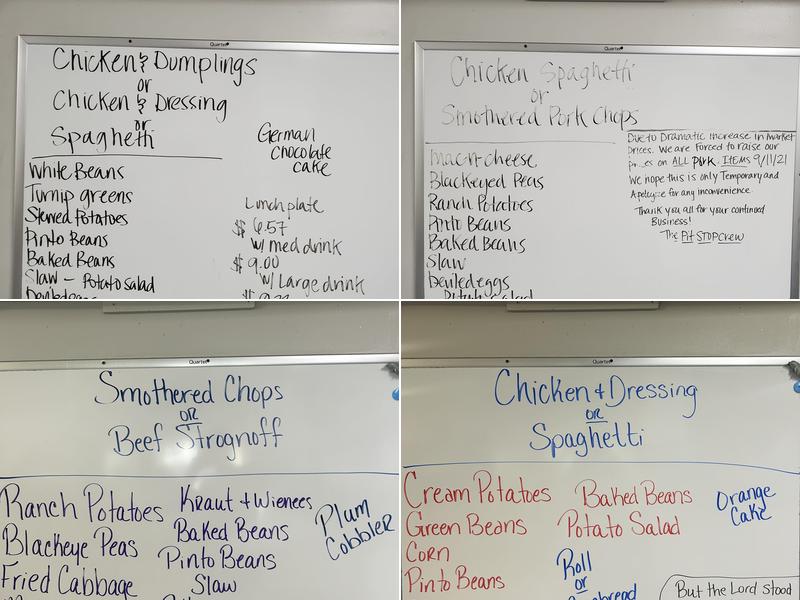 Quartet
Chicken & Dumplings
or
Chicken & Dressing
or
Spaghetti
German
chocolate
cake
White Beans
Turnip greens
Stewed Potatoes
Pinto Beans
Baked Beans
Slaw - Potato salad
Lunch plate
$ 6.57
w/ med drink
$ 9.00
w/ Large drink
Quartet
Chicken Spaghetti
or
Smothered Pork Chops
mac-n-cheese
Blackeyed Peas
Ranch Potatoes
Pinto Beans
Baked Beans
Slaw
Deviled eggs
Due to Dramatic increase in Market
Prices. We are Forced to raise our
on ALL Pork ITEMS 9/11/21
We hope this is only Temporary and
for any inconvenience.
Thank you all for your continued
Business!
The Pit STOP Crew
Quartet
Smothered Chops
OR
Beef Strognoff
Ranch Potatoes
Blackeye Peas
Fried Cabbage
Kraut + Wienees
Baked Beans
Pinto Beans
Slaw
Plum
Cobbler
Quartet
Chicken + Dressing
OR
Spaghetti
Cream Potatoes
Green Beans
Corn
Pinto Beans
Baked Beans
Potato Salad
Roll
or
Orange
Cake
But the Lord stood